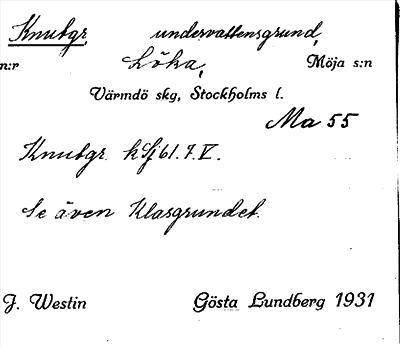 Knutgr. undervattensgrund,
n:r Löka, Möja s:n
Värmdö skg, Stockholms l.
Ma 55
Knutgr. kSj 61.7.V.
Se även Klasgrundet.
J. Westin Gösta Lundberg 1931